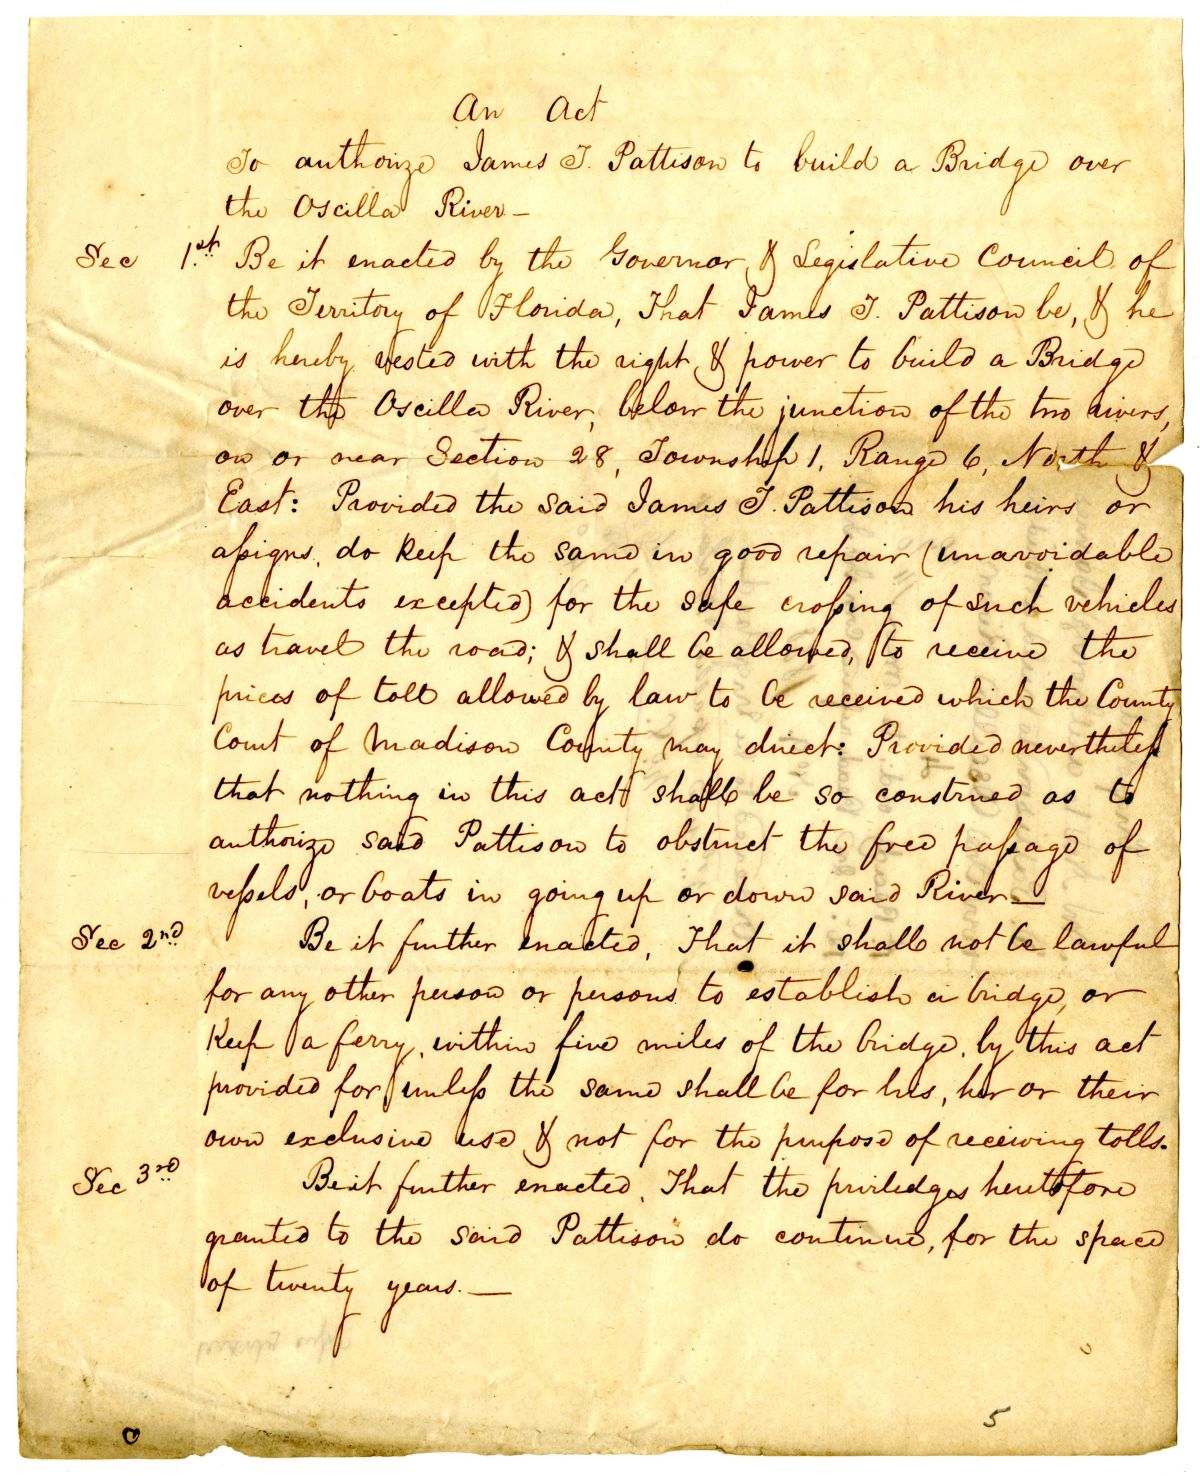 An Act
To authorize James T. Pattison to build a Bridge over
the Oscilla River –
Sec 1st. Be it enacted by the Governor, & Legislative Council of
the Territory of Florida, That James T. Pattison be, & he
is hereby vested with the right & power to build a Bridge
over the Oscilla River, below the junction of the two rivers,
on or near Section 28, Township 1, Range 6, North &
East: Provided the said James T. Pattison his heirs or
assigns, do keep the same in good repair (unavoidable
accidents excepted) for the safe crossing of such vehicles
as travel the road; & shall be allowed, to receive the
prices of toll allowed by law to be received which the County
Court of Madison County may direct: Provided nevertheless
that nothing in this act shall be so construed as to
authorize said Pattison to obstruct the free passage of
vessels, or boats in going up or down said River –
Sec 2nd. Be it further enacted, That it shall not be lawful
for any other person or persons to establish a bridge, or
keep a ferry, within five miles of the bridge, by this act
provided for, unless the same shall be for his, her or their
own exclusive use & not for the purpose of receiving tolls.
Sec 3rd. Be it further enacted, That the priviledges heretofore
granted to the said Pattison do continue, for the space
of twenty years. –
5